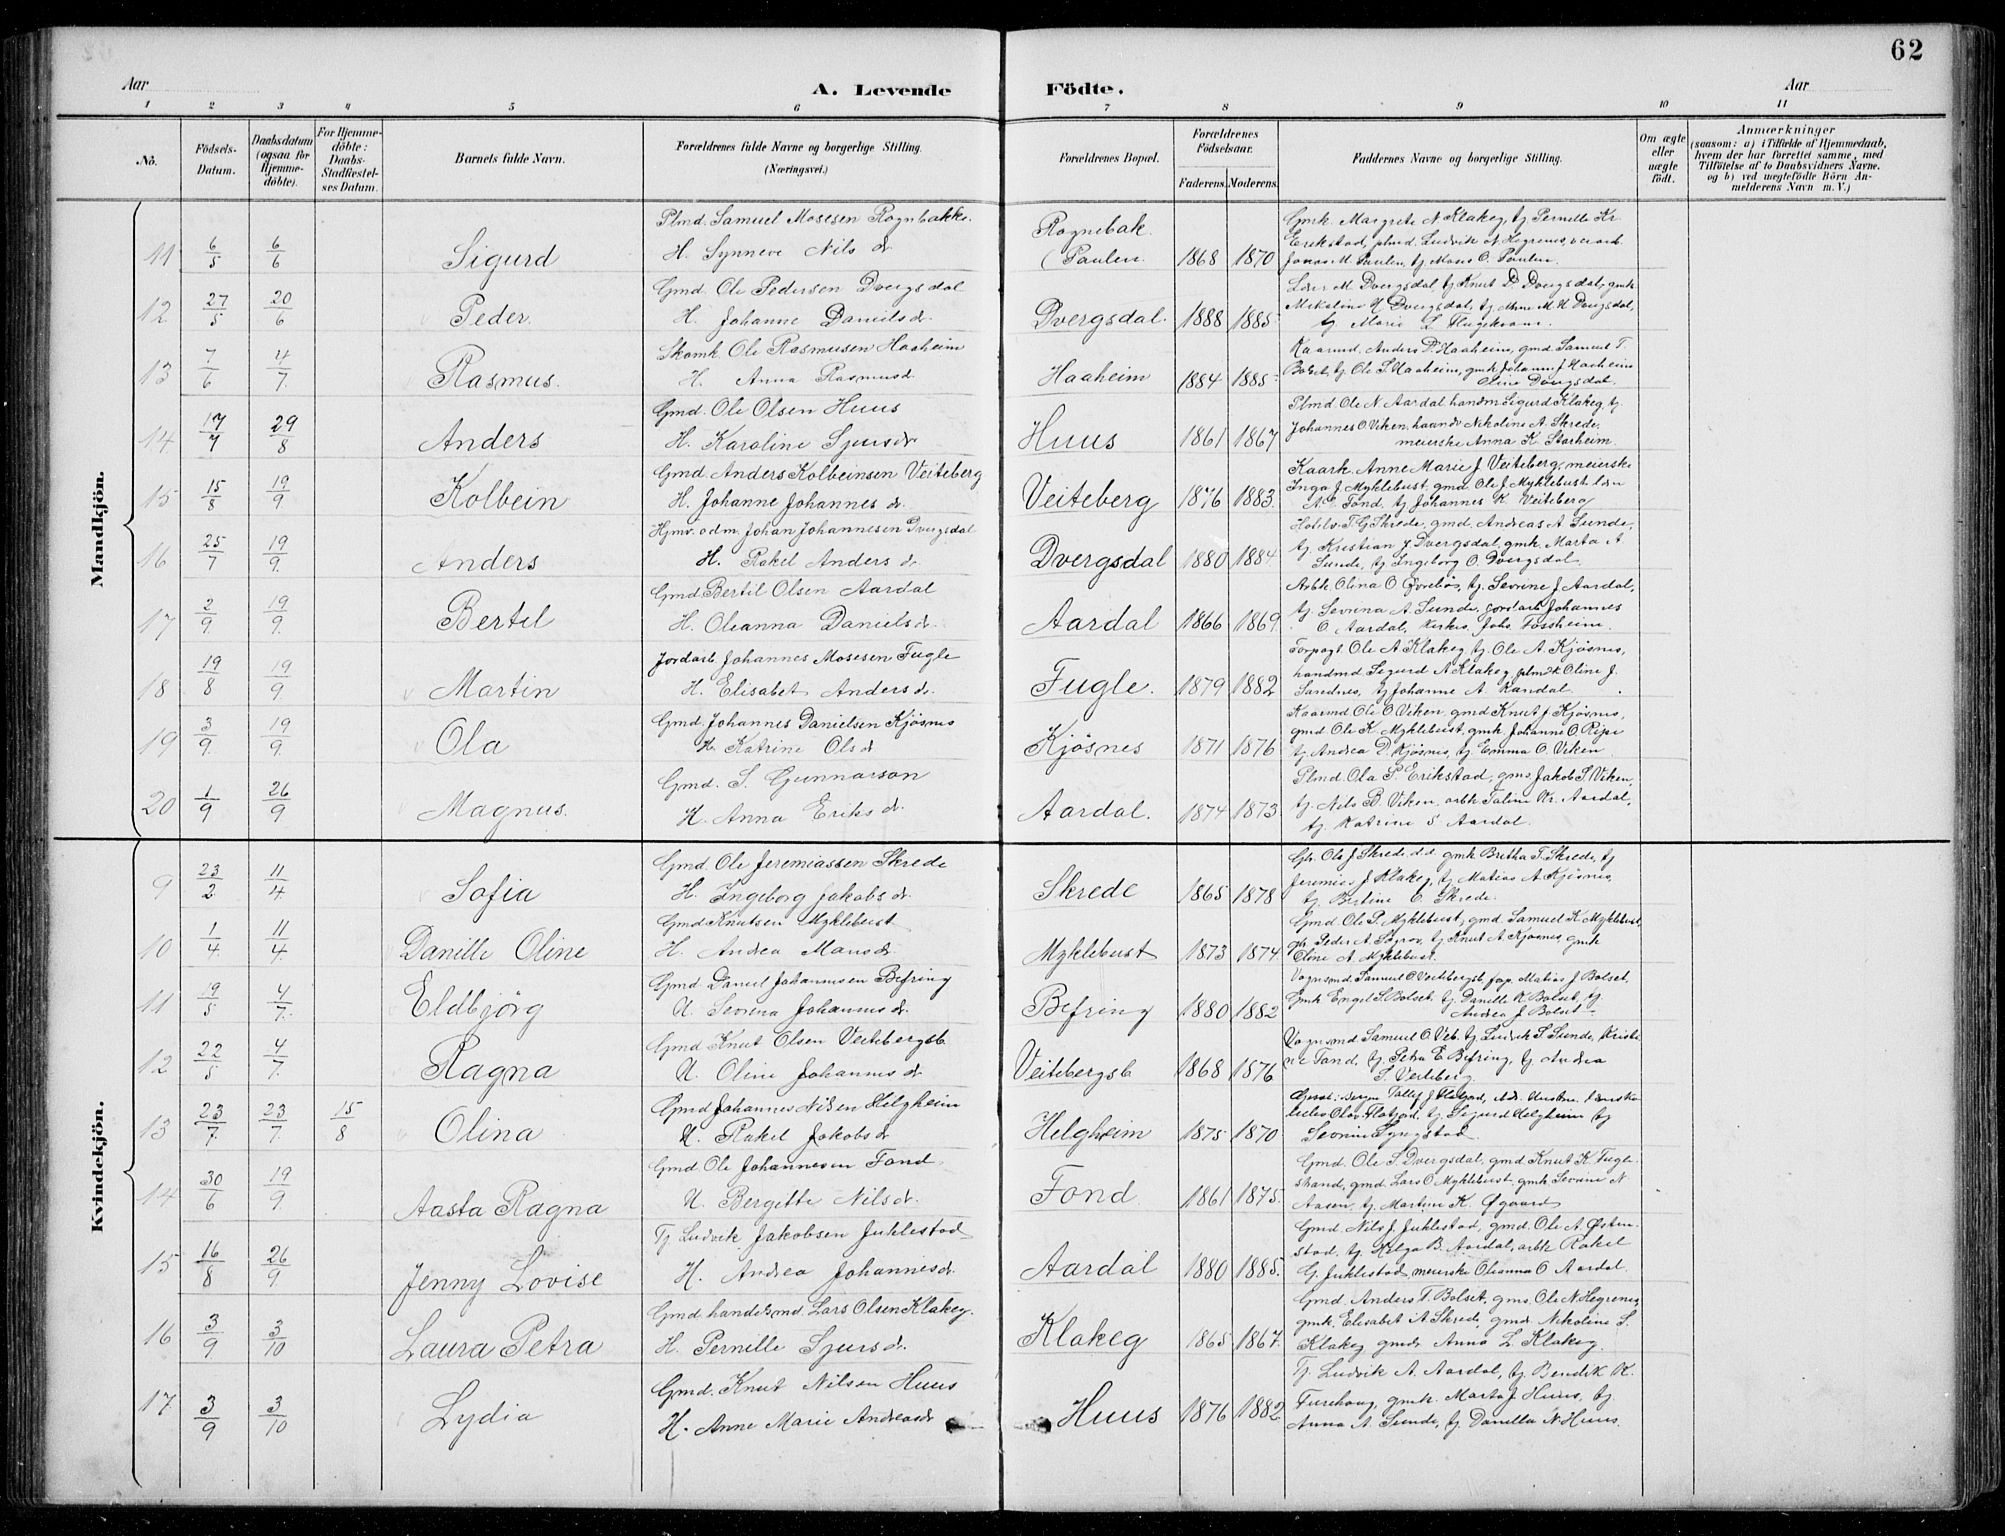 62
Aar
A. Levende Födte.
Aar
1 2 3 4 5 6 7 8 9 10 11
No.
Födsels-Datum.
Daabsdatum (ogsaa for Hjemme-döbte).
For Hjemme-döbte: Daabs-Stadfæstel-ses Datum.
Barnets fulde Navn.
Forældrenes fulde Navne og borgerlige Stilling. (Næringsvei.)
Forældrenes Bopæl.
Forældrenes Födselsaar.
Faderens. Moderens.
Faddernes Navne og borgerlige Stilling.
Om ægte eller uægte født.
Anmærkninger
(saasom: a) i Tilfælde af Hjemmedaab, hvem der har forrettet samme, med Tilföielse af to Daabsvidners Navne, og b) ved uægtefödte Börn An-melderens Navn m. V.)
Mandkjön.
11 6/5 6/6 Sigurd
Plmd. Samuel Mosesen Rognebakke.
H. Synneve Nils dr.
Rognebak. (Paulen 1868 1870
Gmk. Margrete N Klakeg, tj Pernille Kr.
Erikstad, plmd. Ludvik N. Hegrenes,
Jonas M. Paulen, tj Moses O. Paulen.
12 27/5 20/6 Peder.
Gmd. Ole Pedersen Dvergsdal
H. Johanne Daniels dr.
Dvergsdal. 1888 1885
M Dvergsdal tj Knut D. Dvergsdal, gmk
Mikaline N Dvergsdal, tj Anne M. H Dvergsdal,
tj Marie L Flugekvam.
13 7/6 4/7. Rasmus.
Skomk Ole Rasmusen Haaheim
H. Anna Rasmusd
Haaheim 1884 1885
Kaarmd. Anders D. Haaheim, gmd. Samuel T.
Bolset, tj. Ole S. Haaheim, gmk Johanne J Haaheim
Oline Dvergsdal.
14 17/7 29/8 Anders
Gmd. Ole Olsen Huus
H. Karoline Sjursdr
Huus 1861 1867
Plmd. Ole N. Aardal, handm Sigurd Klakeg, tj.
Johannes O Viken, haandv Nikoline A. Skrede,
meierske Anna K. Starheim.
15 15/8 19/9. Kolbein
Gmd Anders Kolbeinsen Veiteberg
H. Johanne Johannes dr.
Veiteberg 1876 1883.
Kaark. Anne Marie J Veiteberg, meierske
Inga J. Myklebust, gmd. Ole J. Myklebust
Fond, tj Johannes K. Veiteberg
16 25/7 19/9. Anders
Hjmv. o dm. Johan Johannesen Dvergsdal
H. Rakel Anders dr
Dvergsdal 1880 1884
T G Skrede, gmd. Andreas A Sunde,
tj. Kristian J Dvergsdal, gmk. Marta A
Sunde, tj Ingeborg O. Dvergsdal
17 2/9. 19/9. Bertil
Gmd. Bertil Olsen Aardal
H. Oleanna Daniels dr.
Aardal 1866 1869
Arbk Olina O Øvrebø, tj. Sevrine J Aardal,
tj. Sevrina A. Sunde, jordarb Johannes
O. Aardal, Kirkes. Johs. Fossheim.
18 19/8 19/9 Martin
Jordarb Johannes Mosesen Fugle
H. Elisabet Anders dr.
Fugle. 1879 1882
Forpagt. Ole A Klakeg, tj. Ole A. Kjøsnes,
handmd Sigurd A Klakeg, plmdk Oline J.
Sandnes, tj Johanne A Kandal.
19 3/9. 19/9. Ola
Gmd. Johannes Danielsen Kjøsnes
H. Katrine Ols d
Kjøsnes 1871 1876
Kaarmd Ole O Viken, gmd Knut J. Kjøsnes,
gmd Ole K. Myklebust, gmk. Johanne O Ripe
tj Andrea D. Kjøsnes, tj. Emma O. Viken
20 1/9 26/9. Magnus.
Gmd. S. Gunnarson
H. Anna Eriks dr.
Aardal. 1874 1873
Plmd Ola P. Erikstad, gms Jakob S. Viken,
tj. Nils B. Viken, arbk Taline Kr. Aardal,
tj Katrine S Aardal.
Kvindekjön.
9 23/2 11/4. Sofia
Gmd Ole Jeremiassen Skrede
H. Ingeborg Jakobs dr
Skrede 1865 1878
Gbr. Ole J Skrede d.e. gmk Bretha T. Skrede, tj
Jeremias J Klakeg, tj Matias A Kjøsnes,
tj. Bertine O. Skrede.
10 1/4. 11/4. Danille Oline
Gmd Knutsen Myklebust
H. Andrea Mons dr.
Myklebust 1873 1874
Gmd Ole P. Myklebust, gmd. Samuel K Myklebust,
Peder A. Søgrov, tj Knut A Kjøsnes, gmk
Eline A Myklebust.
11 19/5 4/7. Eldbjörg
Gmd. Daniel Johannesen Befring
H. Severina Johannes dr.
Befring 1880 1882
Vognmd Samuel O Veitebergsb, Matias J Bolset,
Gmk Engel S. Bolset. tj Danielle K Bolset, tj
Andrea J. Bolset
12 22/5 4/7. Ragna
Gmd Knut Olsen Veitebergsb.
H. Oline Johannes dr
Veitebergsb 1868 1876
Vognmd Samuel O Veb. tj Ludvik S. Sunde, Kristi
ne Fond, tj. Petra E. Befring, tj Andrea
S. Veiteberg.
13 23/7. 23/7. 15/8 Olina
Gmd Johannes Nilsen Helgheim
H. Rakel Jakobs dr
Helgheim 1875 1870
Olav Flatjord, tj Sigurd Helgheim tj
14 30/6 19/9. Aasta Ragna
Gmd Ole Johannesen Fond
H. Bergitte Nils dr.
Fond 1861 1875.
Gmd. Ole S. Dvergsdal, gmd Knut K. Fugle-
strand, gmd. Lars O Myklebust. gmk Sevrine N
Aasen, tj. Martine K. Øgaard
15 16/8 26/9 Jenny Lovise
Tj. Ludvik Jakobsen Juklestad
H. Andrea Johannes dr.
Aardal 1880 1885.
Gmd. Nils J. Juklestad, gmd. Ole A. Østen-
stad, tj Helga B. Aardal, arbk Rakel
G. Juklestad, meierske Oleanna O Aardal.
16 3/9. 3/10 Laura Petra
Gmd handelsmd Lars Olsen Klakeg.
H. Pernille Sjurs dr.
Klakeg 1865 1867.
Gmd. Anders T. Bolset, gms. Ole N Hegrenes,
gmk. Elisabet A Skrede, gmdr Nikoline S.
Klakeg gmdr Anna L Klakeg.
17. 3/9 3/10 Lydia
Gmd. Knut Nilsen Huus
H. Anne Marie Andreasdr
Huus 1876 1882
Tj. Ludvik A. Aardal, tj. Bendik K.
Furehaug, gmk. Marta J Huus, tj.
Anna A. Sunde, tj. Danella N. Huus.